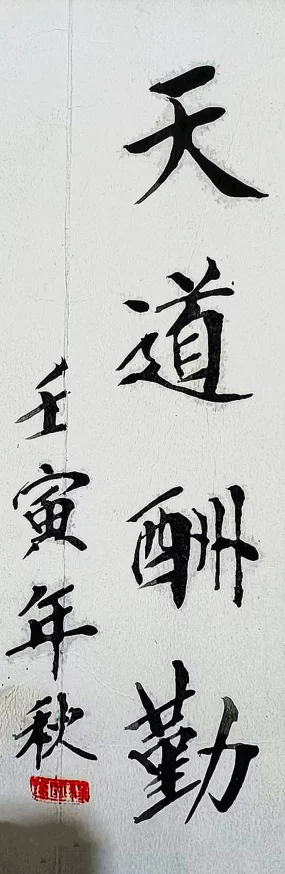 天道酬勤
壬寅年秋